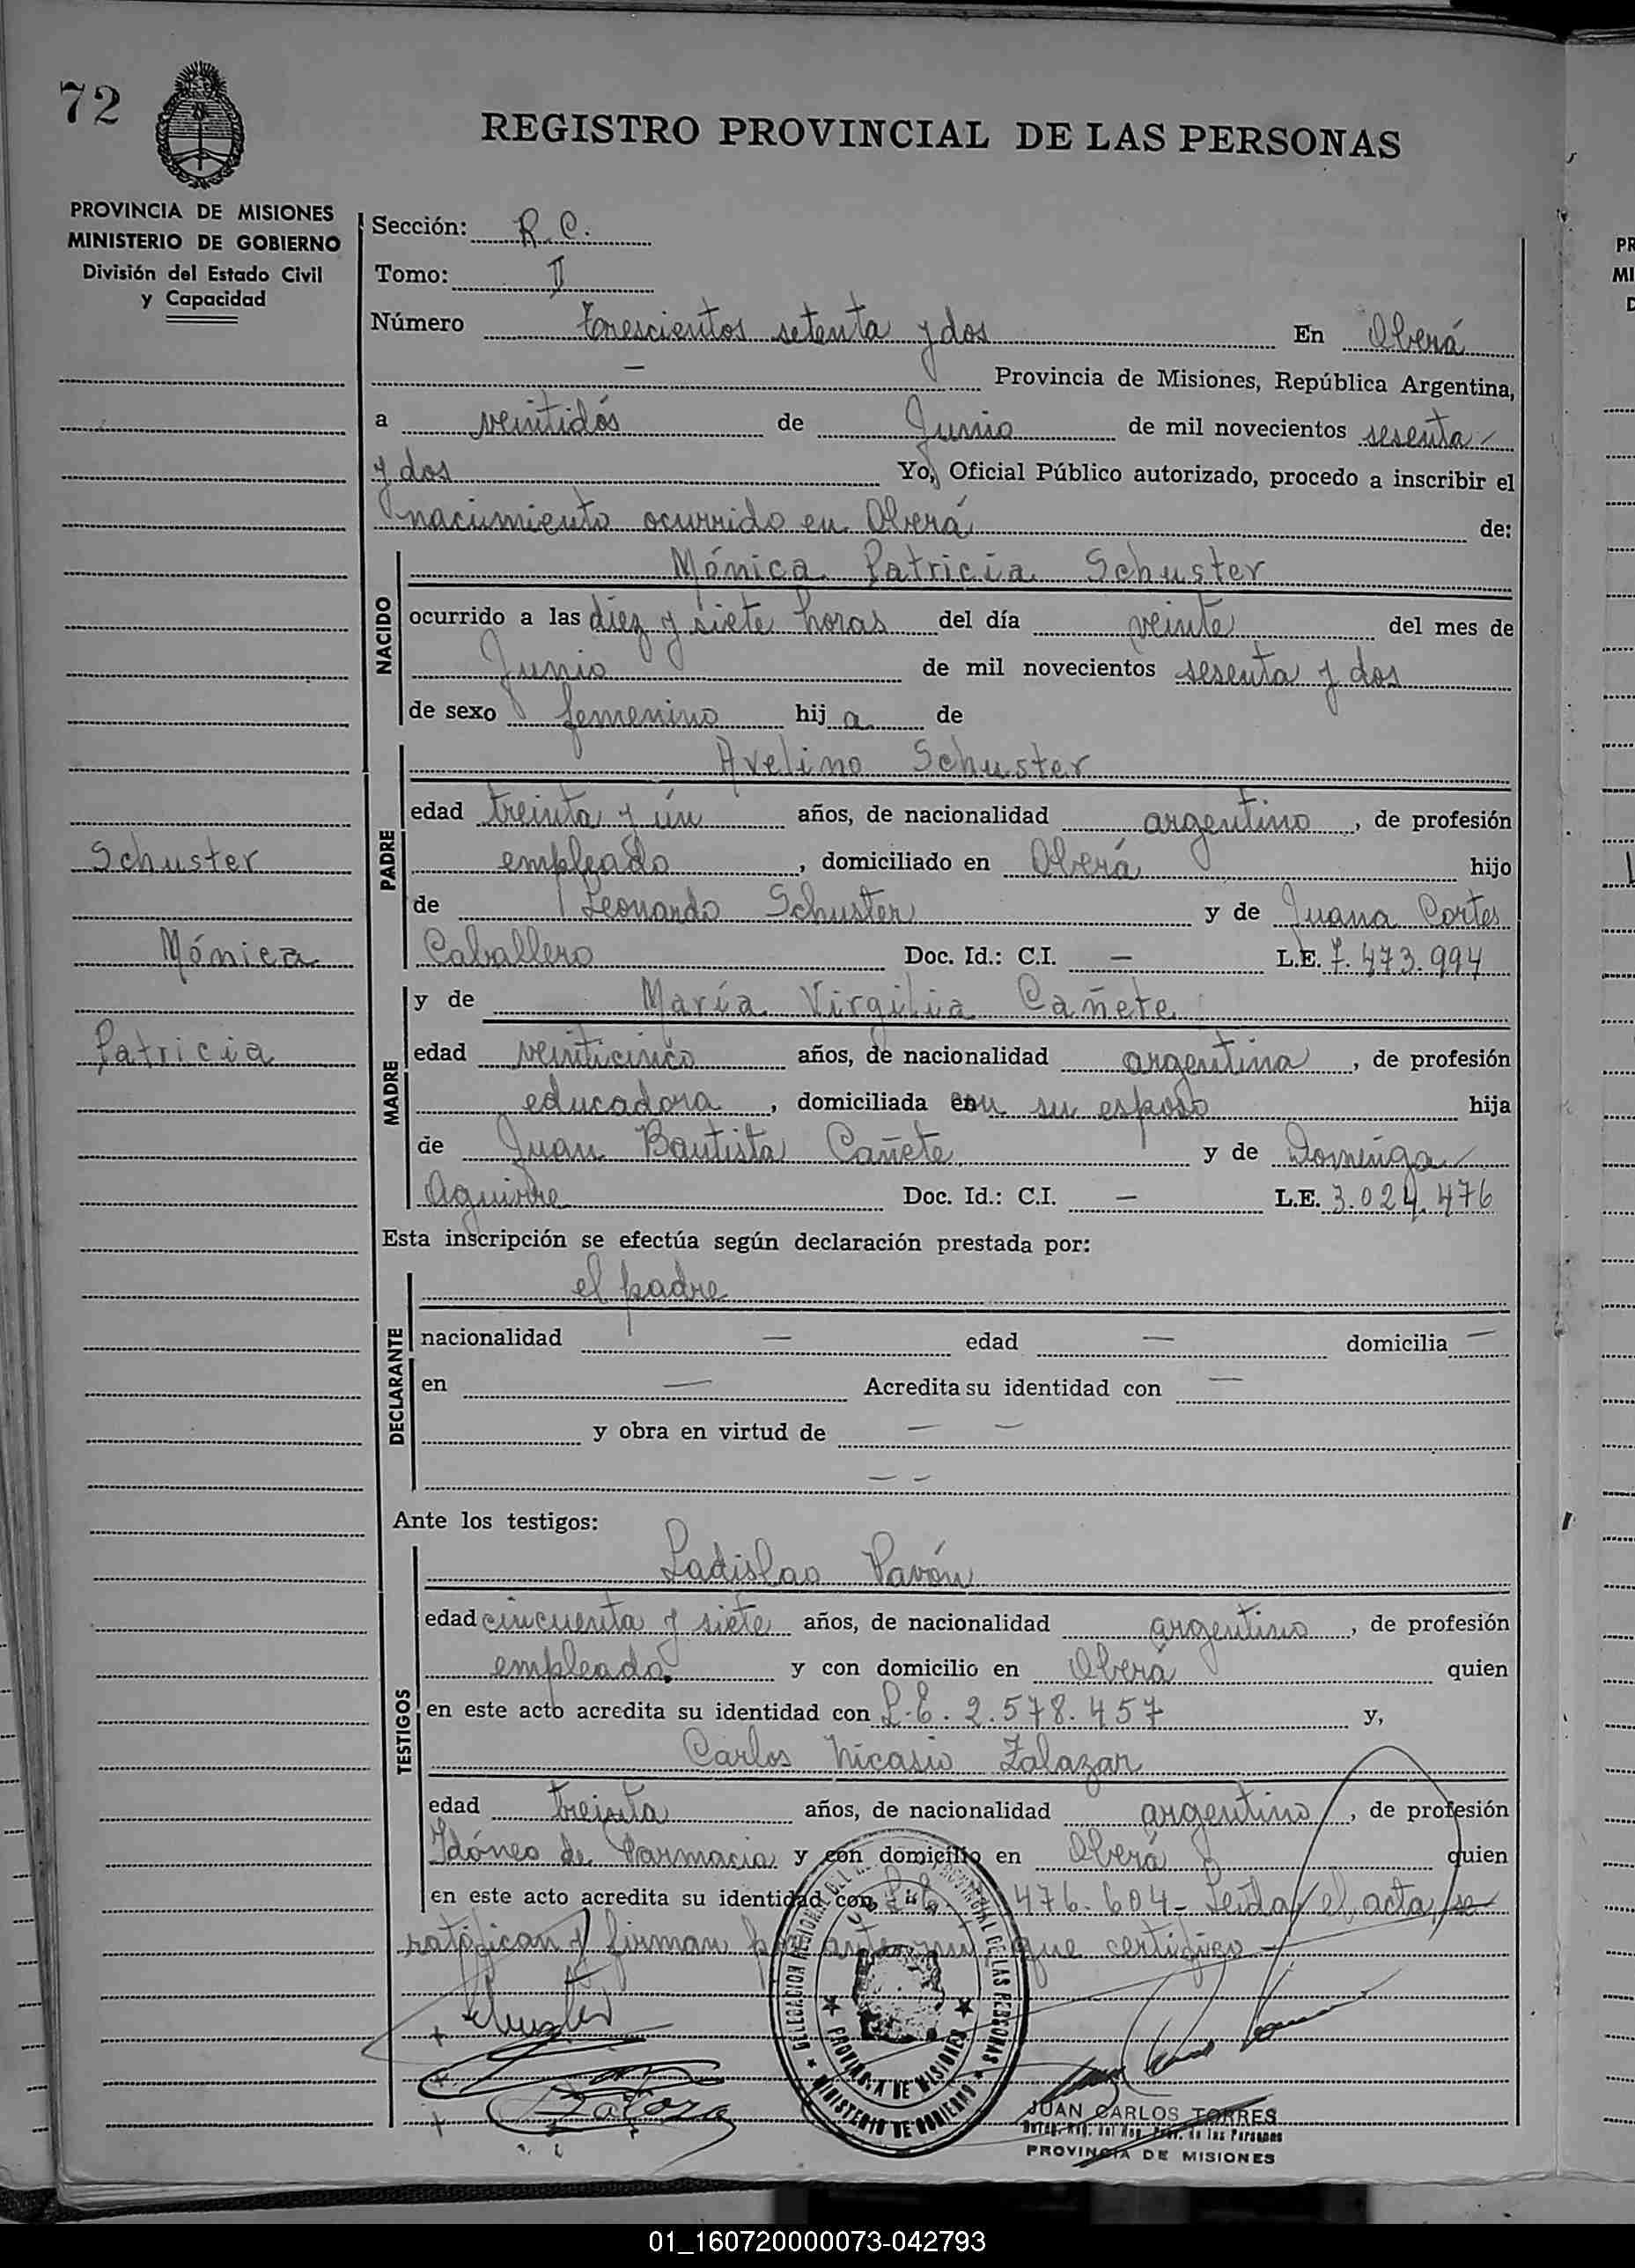 72
REGISTRO PROVINCIAL DE LAS PERSONAS
PROVINCIA DE MISIONES
MINISTERIO DE GOBIERNO
División del Estado Civil
y Capacidad
Schuster
Mónica
Patricia
Sección: R. C.
Tomo: II
Número Trescientos setenta y dos En Oberá
— Provincia de Misiones, República Argentina,
a veintidós de Junio de mil novecientos sesenta
y dos Yo, Oficial Público autorizado, procedo a inscribir el
nacimiento ocurrido en Oberá de:
NACIDO
Mónica Patricia Schuster
ocurrido a las diez y siete horas del día veinte del mes de
Junio de mil novecientos sesenta y dos
de sexo femenino hij a de
PADRE
Avelino Schuster
edad treinta y ún años, de nacionalidad argentino, de profesión
empleado, domiciliado en Oberá hijo
de Leonardo Schuster y de Juana Cortes
Caballero Doc. Id.: C.I. — L.E. 7.473.994
MADRE
y de María Virgilia Cañete
edad veinticinco años, de nacionalidad argentina, de profesión
educadora, domiciliada con su esposo hija
de Juan Bautista Cañete y de Dominga
Aguirre Doc. Id.: C.I. — L.E. 3.024.476
Esta inscripción se efectúa según declaración prestada por:
DECLARANTE
el padre
nacionalidad — edad — domicilia —
en — Acredita su identidad con —
y obra en virtud de — —
— —
Ante los testigos:
TESTIGOS
Ladislao Pavón
edad cincuenta y siete años, de nacionalidad argentino, de profesión
empleado. y con domicilio en Oberá quien
en este acto acredita su identidad con L.E. 2.578.457 y,
Carlos Nicasio Zalazar
edad treinta años, de nacionalidad argentino, de profesión
Idóneo de Farmacia y con domicilio en Oberá quien
en este acto acredita su identidad con 476.604- Leída el acta, se
ratifican y firman por ante mí que certifico —
Schuster
DELEGACION REGIONAL DEL PROVINCIAL DE LAS PERSONAS
PROVINCIA DE MISIONES
MINISTERIO DE GOBIERNO
JUAN CARLOS TORRES
Deleg. Reg. del Reg. Prov. de las Personas
PROVINCIA DE MISIONES
PR
MI
D
01_160720000073-042793